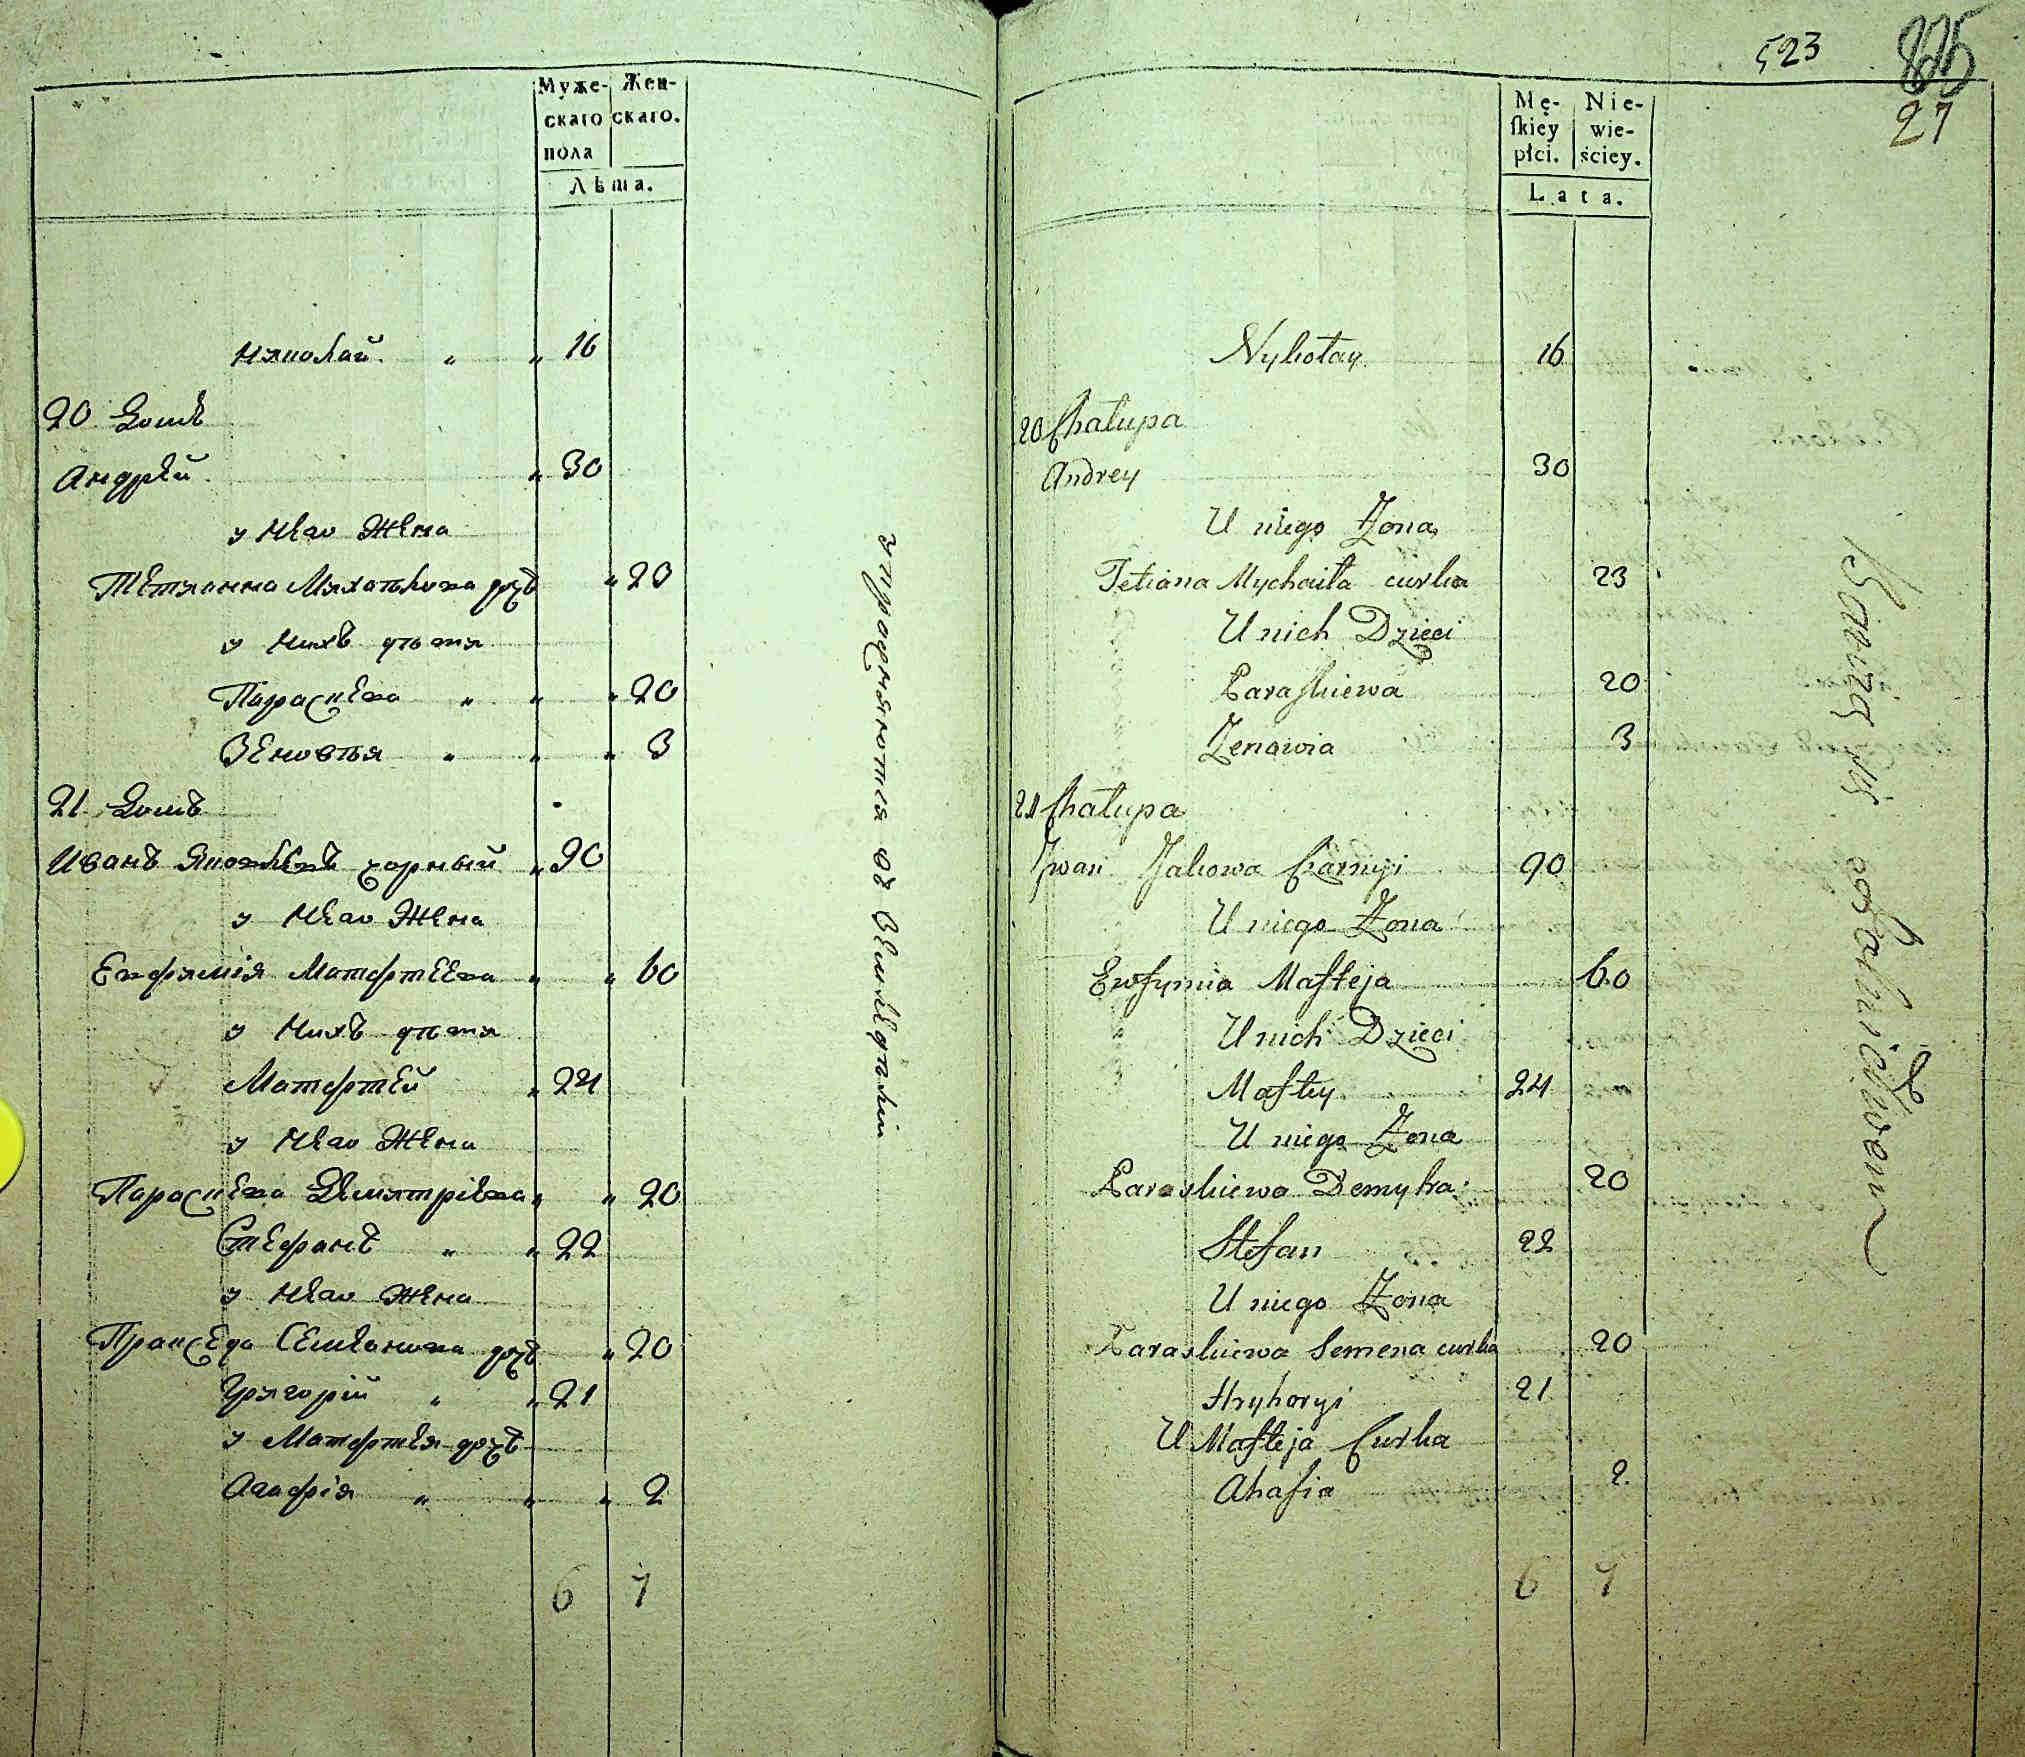 Муже-
скаго
пола
Жен-
скаго.
Лѣта.
Николай " " 16
20 Домъ
Андрѣй " 30
у Нѣго Жена
Тетянна Михайлова дочъ " 23
у Нихъ дѣти
Параскева " " " 20
Зеновѣя " " " 3
21 Домъ
Иванъ Яковлевъ Чорный " 90
у Нѣго Жена
Евфимія Матфтеева " " 60
у Нихъ дѣти
Матфтей " 24
у Нѣго Жена
Параскева Димитріева " " 20
Стефанъ " " 22
у Нѣго Жена
Пракседа Семенова дочъ " 20
Григорій " " 21
у Матфтея дочъ
Агафія " " " 2
6 7
упражняются въ Земледѣліи
523
27
Mę-
skiey
płci.
Nie-
wie-
ściey.
Lata.
Nykołay 16
20 Chałupa
Andrey 30
U niego Żona
Tetiana Mychaiła curka 23
U nich Dzieci
Paraskiewa 20
Zenowia 3
21 Chałupa
Iwan Jakowa Czarnyi 90
U niego Żona
Ewfymia Mafteja 60
U nich Dzieci
Maftey 24
U niego Żona
Paraskiewa Demytra 20
Stefan 22
U niego Żona
Paraskiewa Semena curka 20
Hryhoryi 21
U Mafteja Curka
Ahafia 2
6 7
Bawią się rolnictwem